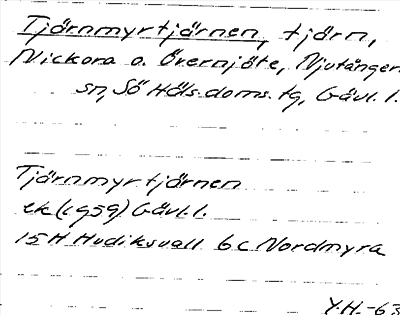 Tjärnmyrtjärnen, tjärn,
Nickora o. Övernjöte, Njutånger
sn, Sö Häls. doms. tg, Gävl. l.
Tjärnmyrtjärnen
ek (1959) Gävl. l.
15 H Hudiksvall 6 c Nordmyra
Y.H.-63